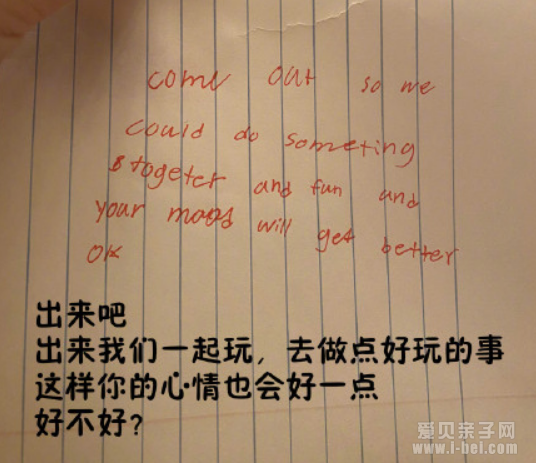 come out so we
could do someting
togeter and fun and
your mood will get better
OK
出来吧
出来我们一起玩，去做点好玩的事
这样你的心情也会好一点
好不好？
爱贝亲子网
www.i-bei.com